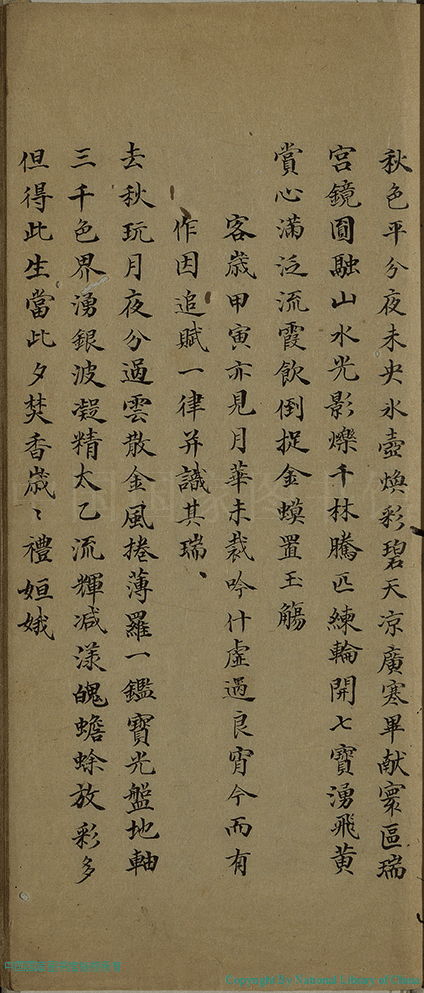 秋色平分夜未央氷壺煥彩碧天凉廣寒畢献寰區瑞
宫鏡圓融山水光影爍千林騰匹練輪開七寶湧飛黄
賞心滿泛流霞飲倒捉金蟆置玉觴
客歳甲寅亦見月華未裁吟什虛過良宵今而有
作因追賦一律并識其瑞、
去秋玩月夜分過雲散金風捲薄羅一鑑寶光盤地軸
三千色界湧銀波凝精太乙流輝減漾魄蟾蜍放彩多
但得此生當此夕焚香歳〻禮姮娥
Copyright by National Library of China